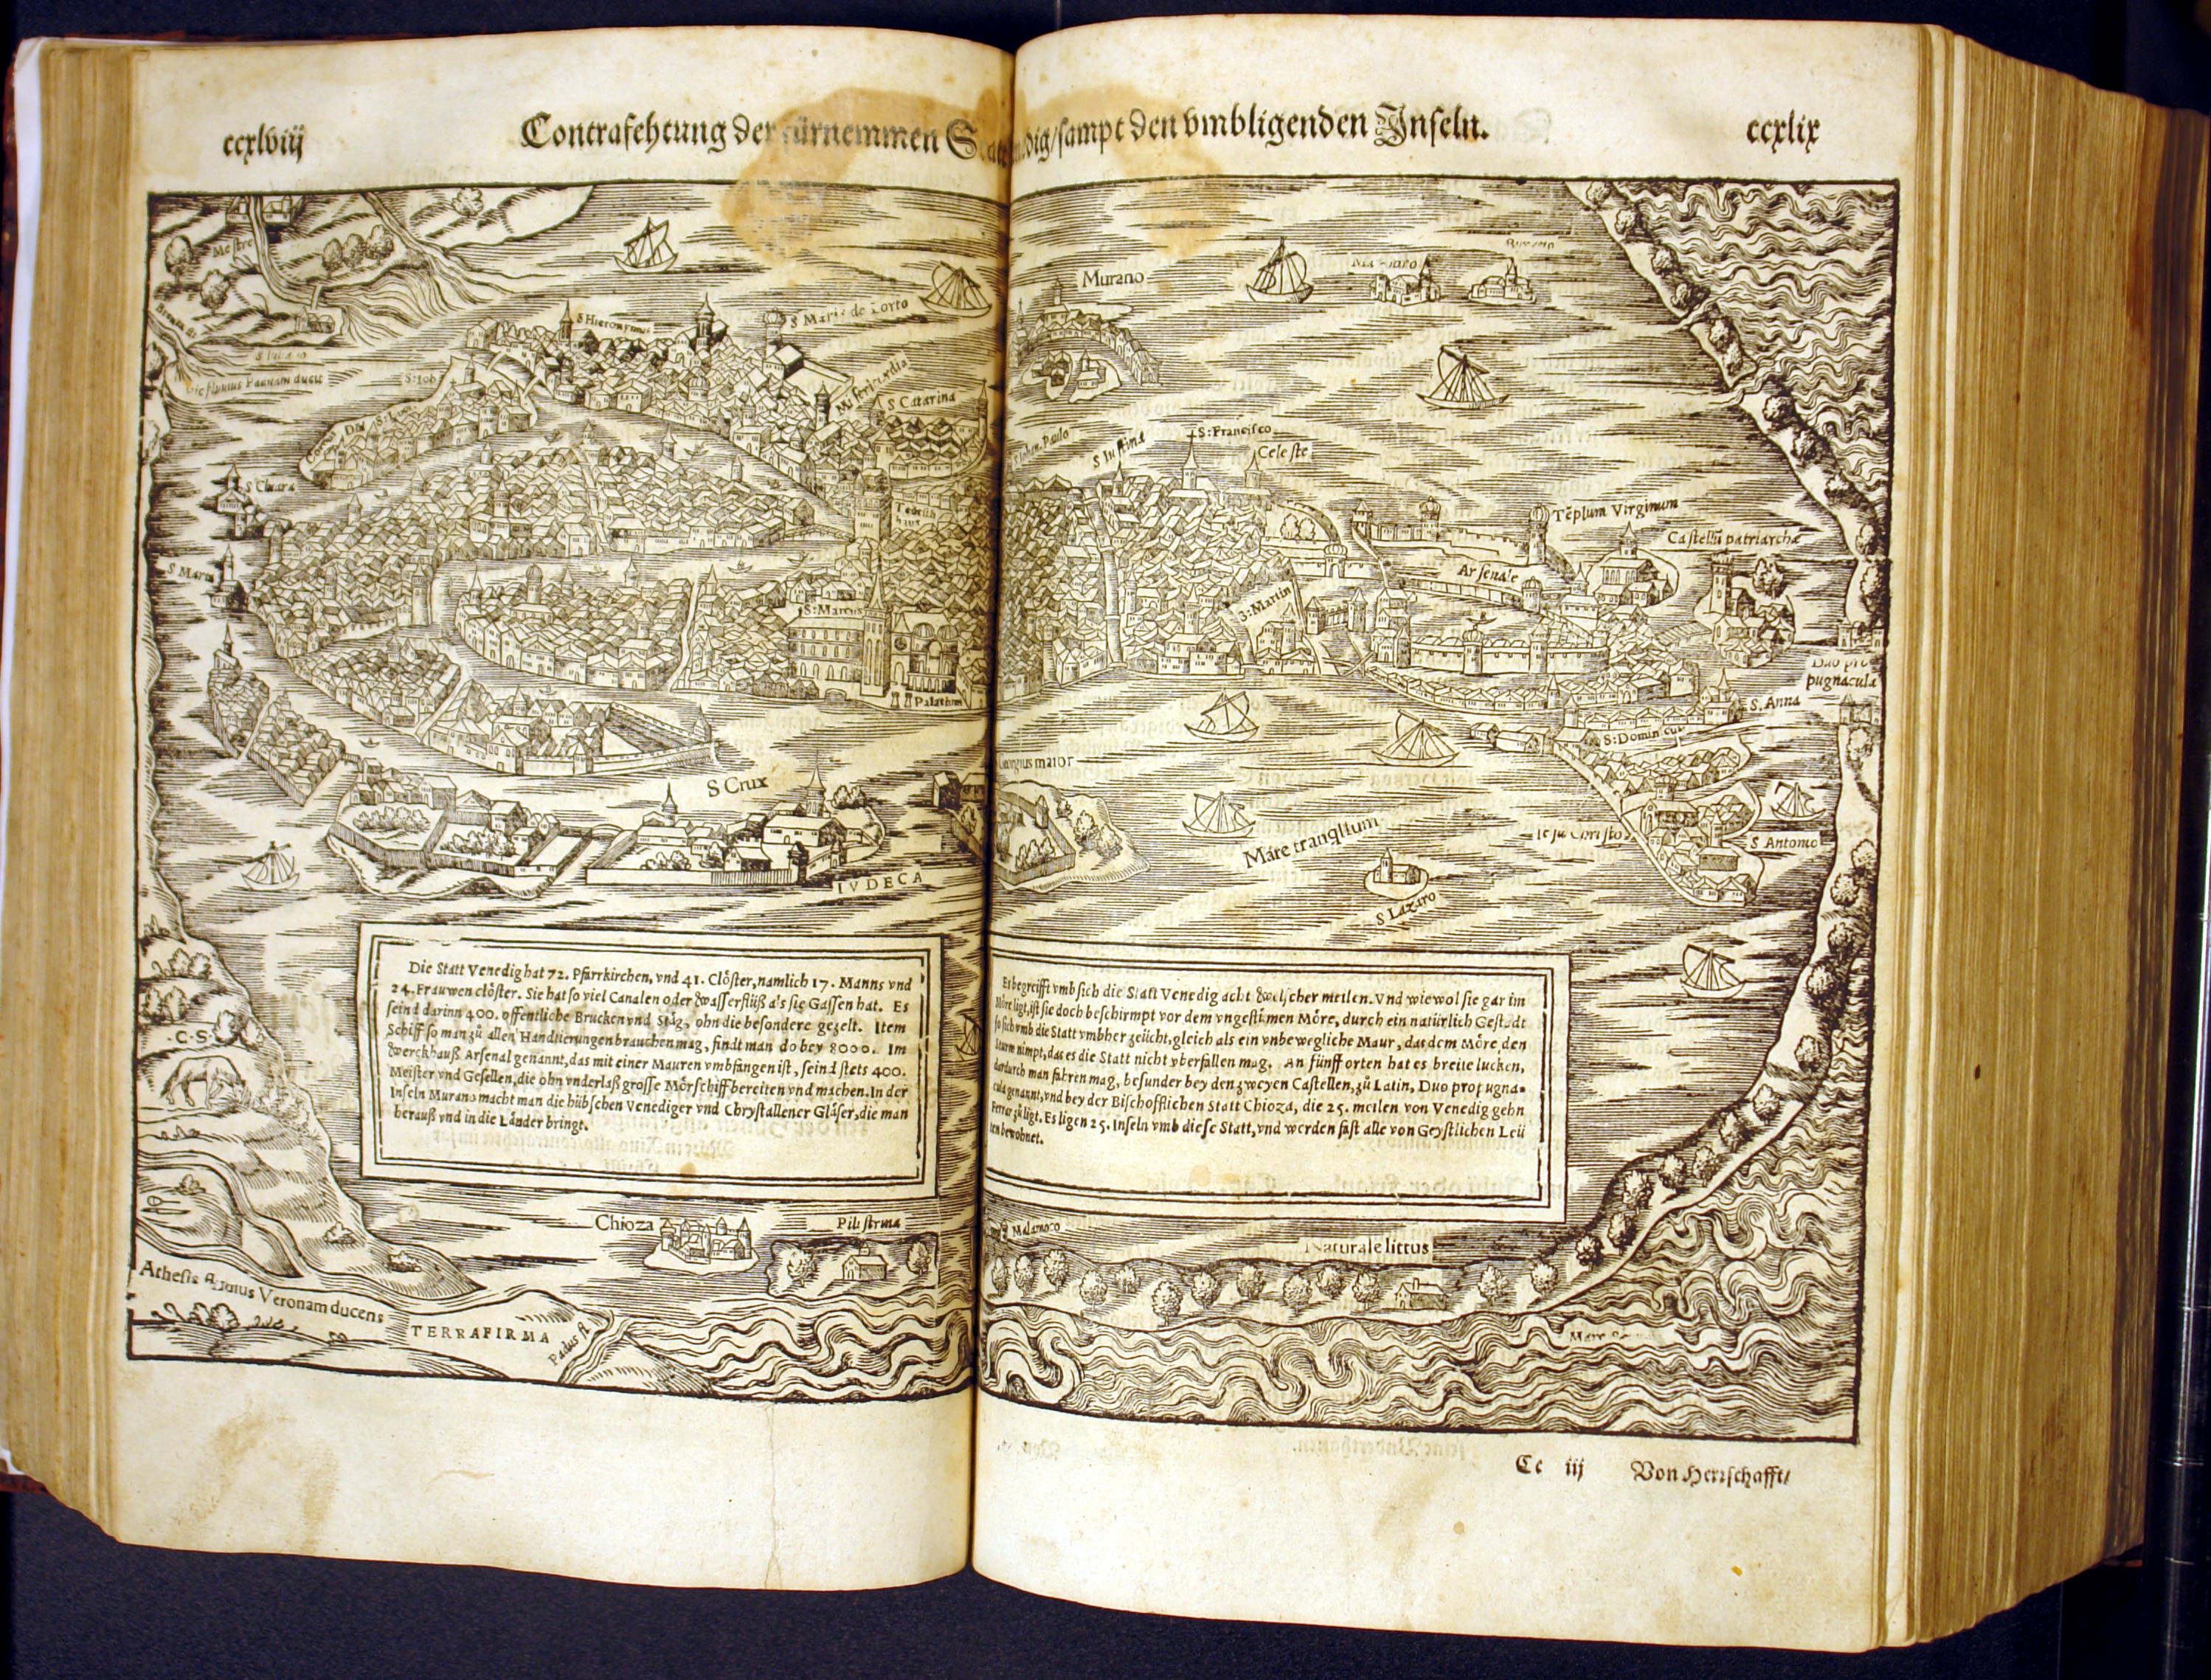 ccxlviij
Contrafehtung der fürnemmen
dig/sampt den vmbligenden Inseln.
ccxlix
Mestre
S Hieronymus
S Maria de Lorto
S:Iob
Misericordia
S Catarina
S Chiara
S Marta
Teütsch
haus
S:Marcus
Palatium
S Crux
IVDECA
Murano
S:Francisco
Celeste
Tẽplum Virginum
Castellũ patriarchæ
Arsenale
S:Martin
Duo pro
pugnacula
S. Anna
S:Dominicus
Georgius maior
Máre tranqllum
S Lazaro
Iesu Christo
S Antonio
Die Statt Venedig hat 72. Pfarrkirchen, vnd 41. Clöster, namlich 17. Manns vnd
24. Frauwen clöster. Sie hat so viel Canalen oder wasserflüß als sie Gassen hat. Es
seind darinn 400. offentliche Brucken vnd Stäg, ohn die besondere gezelt. Item
Schiff so man zů allen Handtierungen brauchen mag, findt man do bey 8000. Im
werckhauß Arsenal genannt, das mit einer Mauren vmbfangen ist, seind stets 400.
Meister vnd Gesellen, die ohn vnderlaß grosse Mörschiff bereiten vnd machen. In der
Inseln Murano macht man die hübschen Venediger vnd Chrystallener Gläser, die man
herauß vnd in die Länder bringt.
Es begreifft vmb sich die Statt Venedig acht welscher meilen. Vnd wiewol sie gar im
Möre ligt, ist sie doch beschirmpt vor dem vngestůmen Möre, durch ein natürlich Gestadt
so sich vmb die Statt vmbher zeücht, gleich als ein vnbewegliche Maur, das dem Möre den
sturm nimpt, das es die Statt nicht vberfallen mag. An fünff orten hat es breite lucken,
dardurch man fahren mag, besunder bey den zweyen Castellen, zů Latin, Duo propugna-
cula genannt, vnd bey der Bischofflichen Statt Chioza, die 25. meilen von Venedig gehn
Ferrar zů ligt. Es ligen 25. Inseln vmb diese Statt, vnd werden fast alle von Geystlichen Leü
ten bewohnet.
.C.S.
Chioza
Pilistrina
Malamoco
Naturale littus
Athesis fluuius Veronam ducens
TERRAFIRMA
Padus fl.
Cc iij
Von Herrschafft/